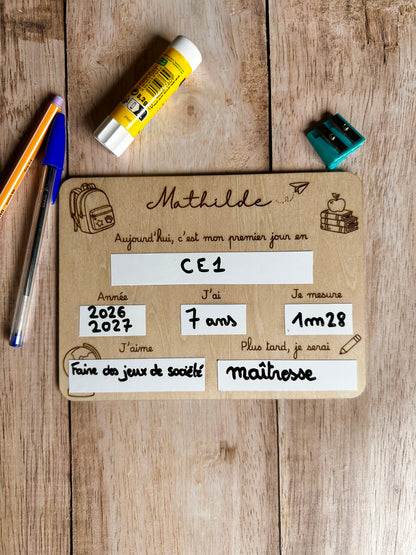 8,2g
Mathilde
Aujourd'hui, c'est mon premier jour en
CE1
Année
J'ai
Je mesure
2026
2027
7 ans
1m28
J'aime
Plus tard, je serai
Faire des jeux de société
maîtresse